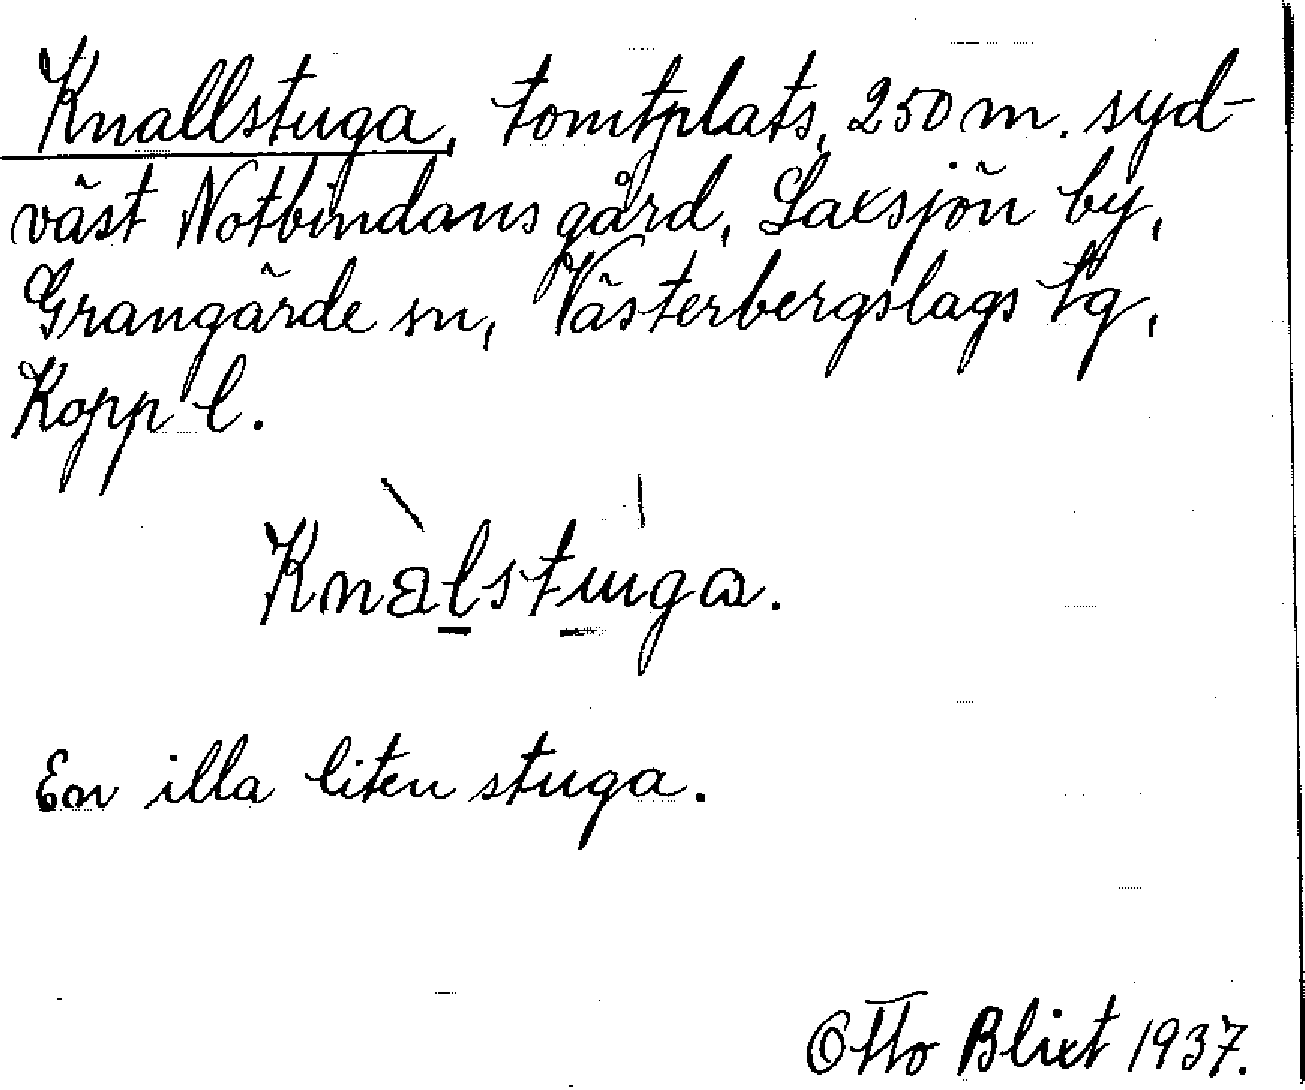 Knallstuga, tomtplats, 250 m. syd-
väst Notbindans gård, Laxsjön by,
Grangärde sn, Västerbergslags tg,
Kopp l.
Knalstuga.
En illa liten stuga.
Otto Blixt 1937.